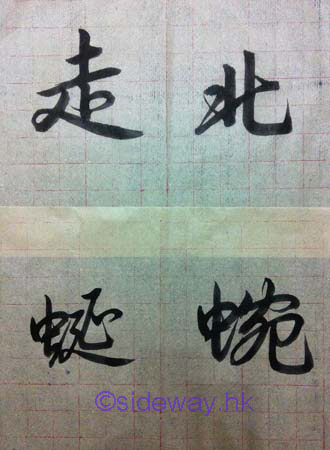 北走
蜿蜒
©sideway.hk